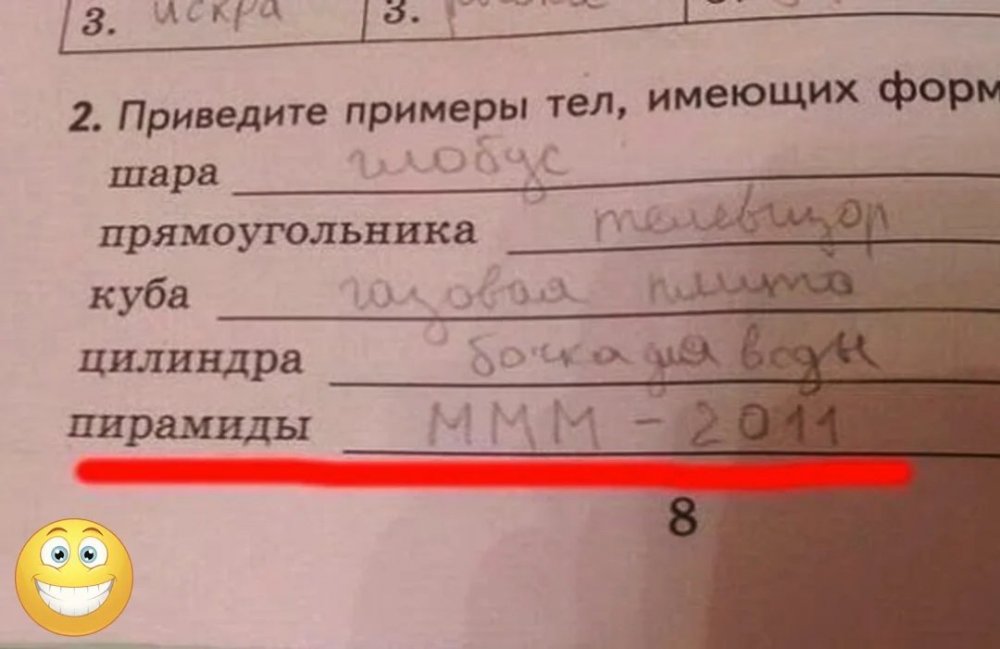 3. искра 3.
2. Приведите примеры тел, имеющих форм
шара глобус
прямоугольника телевизор
куба газовая плита
цилиндра бочка для воды
пирамиды МММ - 2011
8